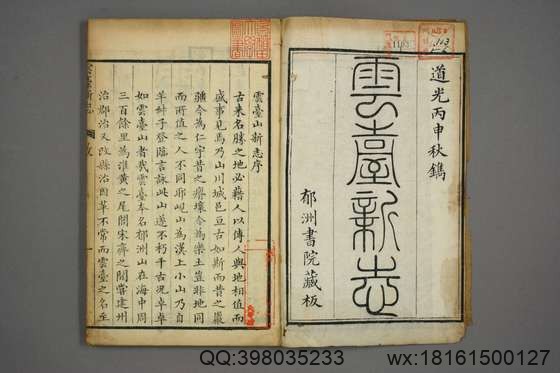 道光丙申秋鐫
雲臺新志
郁洲書院藏板
雲臺山新志序
古来名勝之地必藉人以傳人與地相值而
盛事見焉乃山川城邑亘古如斯而昔之巖
疆今為仁宇昔之瘠壤今為樂土豈非地同
而所值之人不同耶峴山為漢上小山乃自
羊叔子登臨言詠此山遂不朽千古況卓犖
如雲臺山者哉雲臺本名郁洲山在海中周
三百餘里為淮黃之尾閭宋齊之間嘗建州
治郡治又改縣治因革不常而雲臺之名至
QQ:398035233
wx:18161500127